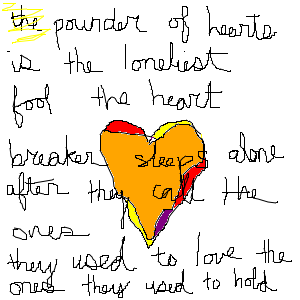 the pounder of hearts
is the loneliest
fool the heart
breaker sleeps alone
after they call the
ones
they used to love the
ones they used to hold